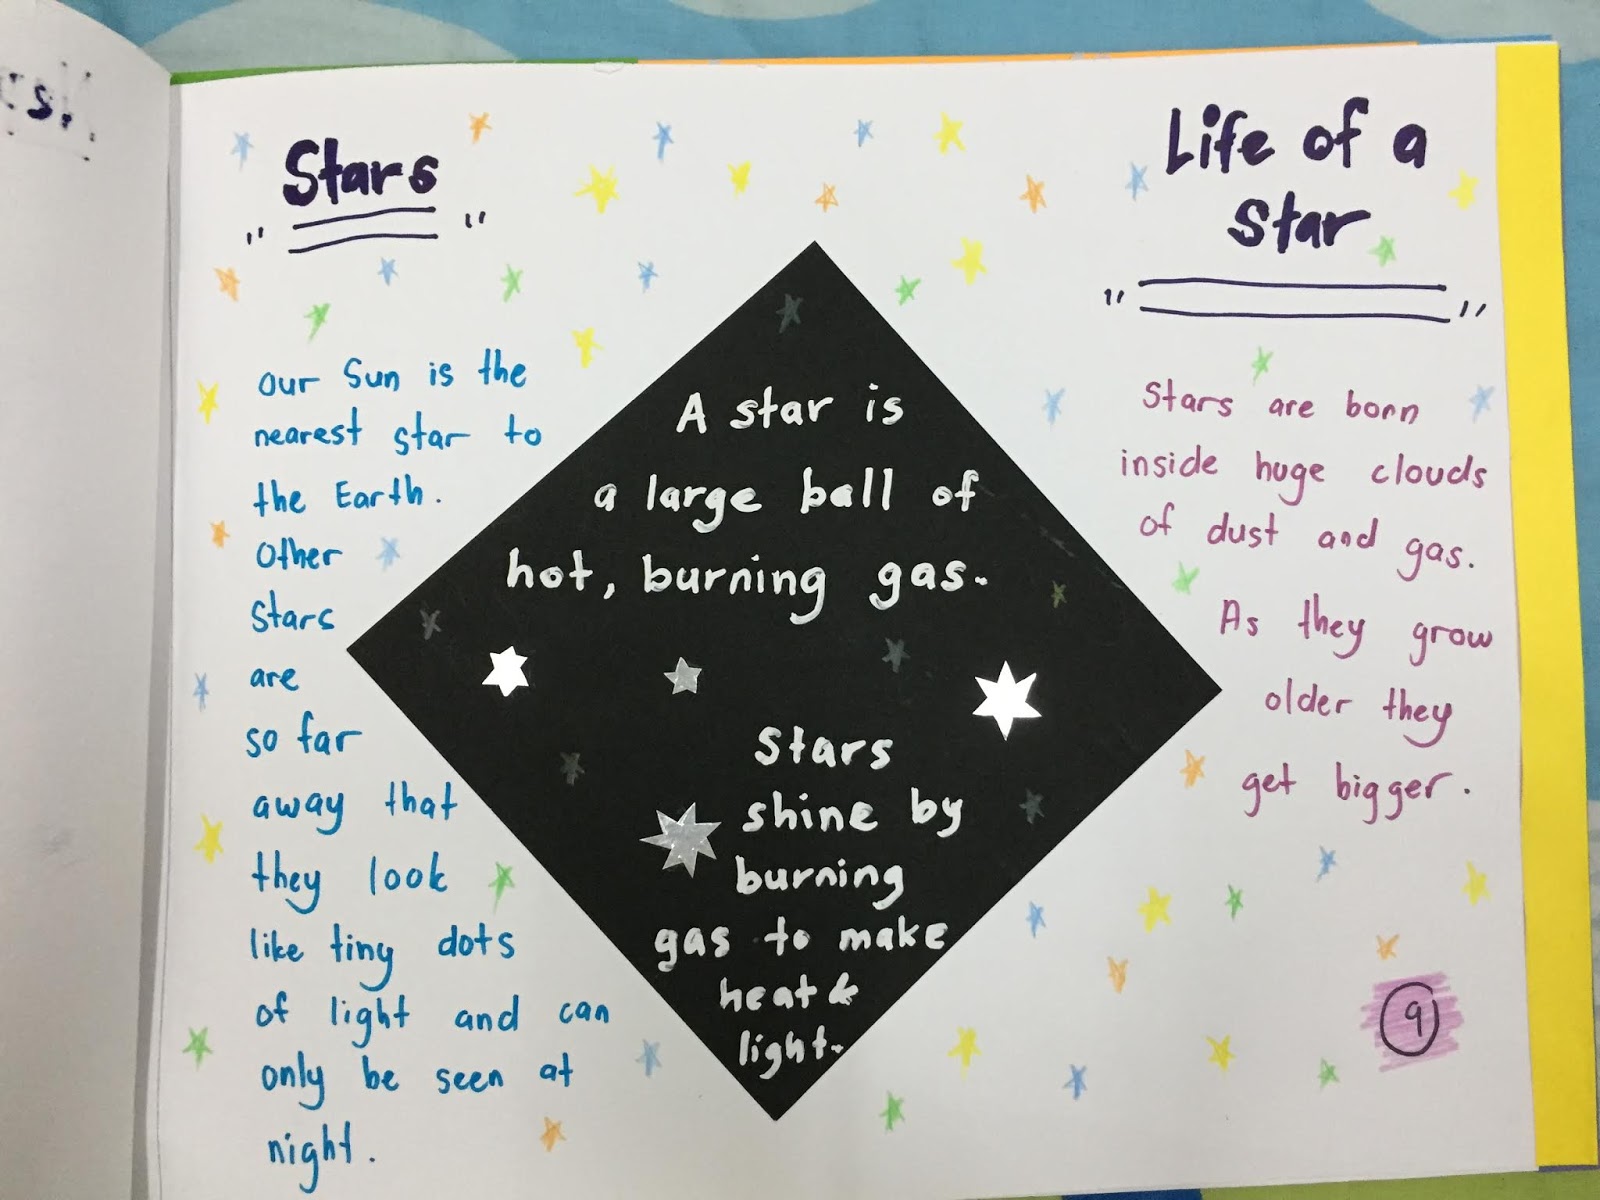 Stars
our Sun is the
nearest star to
the Earth.
Other
stars
are
so far
away that
they look
like tiny dots
of light and can
only be seen at
night.
A star is
a large ball of
hot, burning gas.
Stars
shine by
burning
gas to make
heat &
light.
Life of a
Star
Stars are born
inside huge clouds
of dust and gas.
As they grow
older they
get bigger.
9